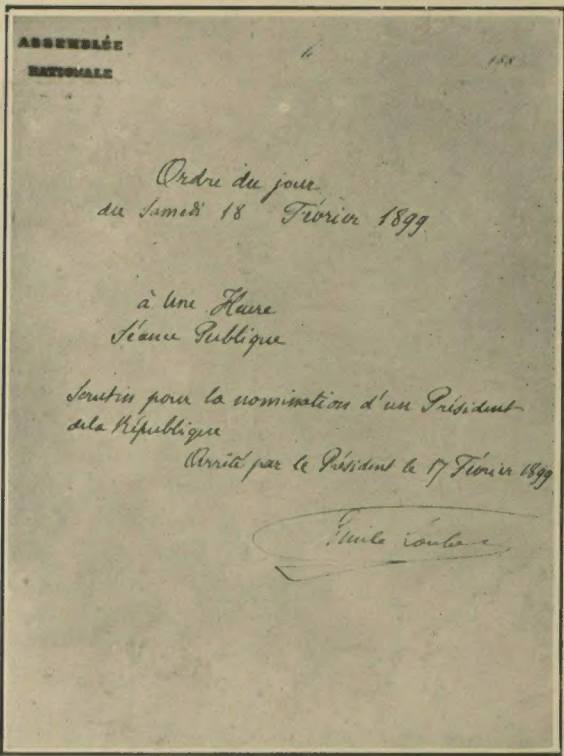 ASSEMBLÉE
NATIONALE
le 188
Ordre du jour
du Samedi 18 Février 1899
à Une Heure
Séance Publique
Scrutin pour la nomination d'un Président
de la République
Arrêté par le Président le 17 Février 1899
Emile Loubet